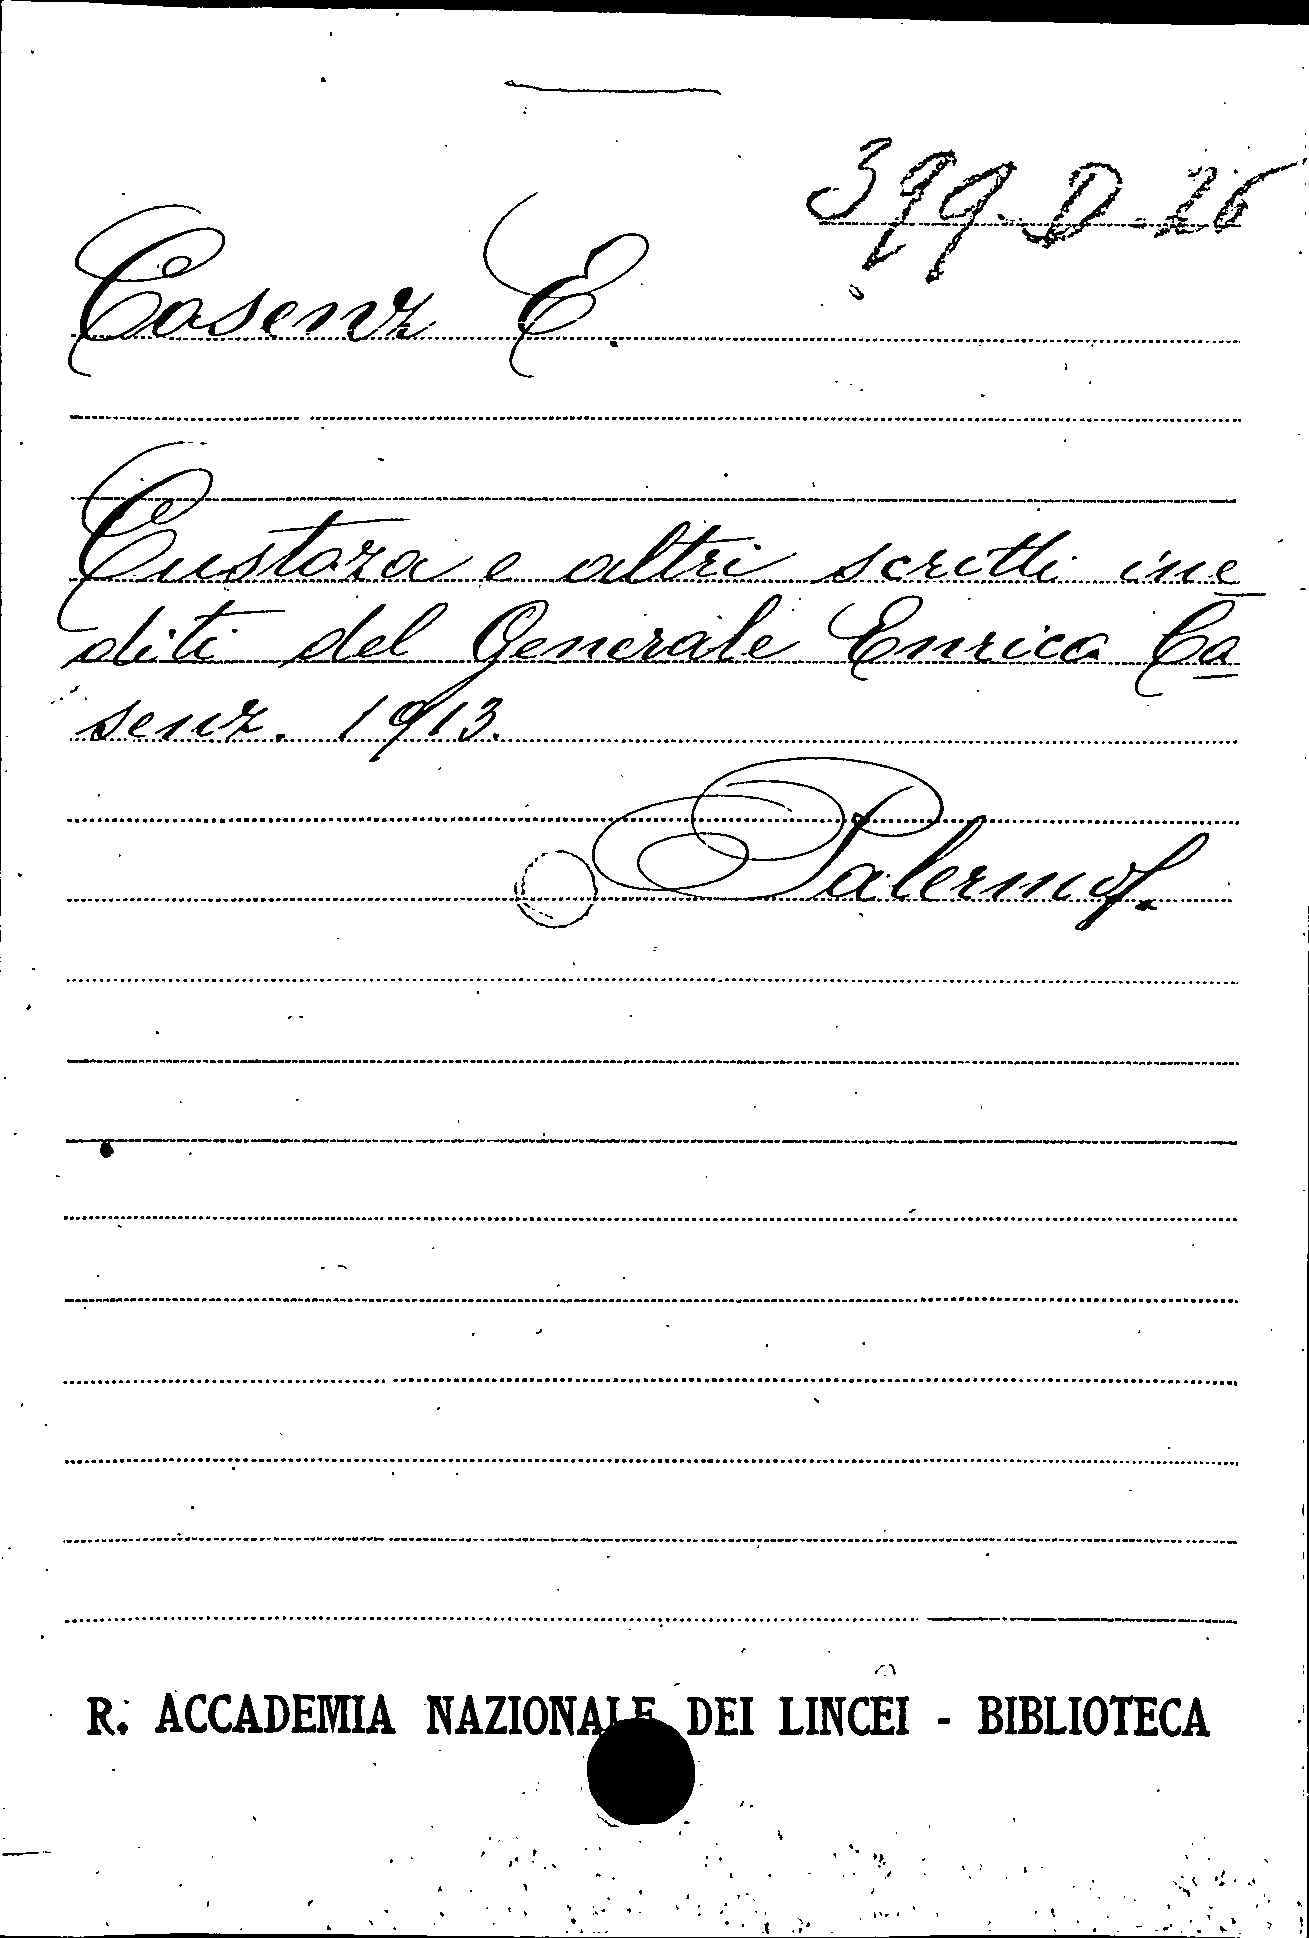 399. D. 26
Cosenz E.
Custoza e altri scritti ine
diti del Generale Enrico Co
senz. 1913.
Palermo f.
R. ACCADEMIA NAZIONALE DEI LINCEI - BIBLIOTECA